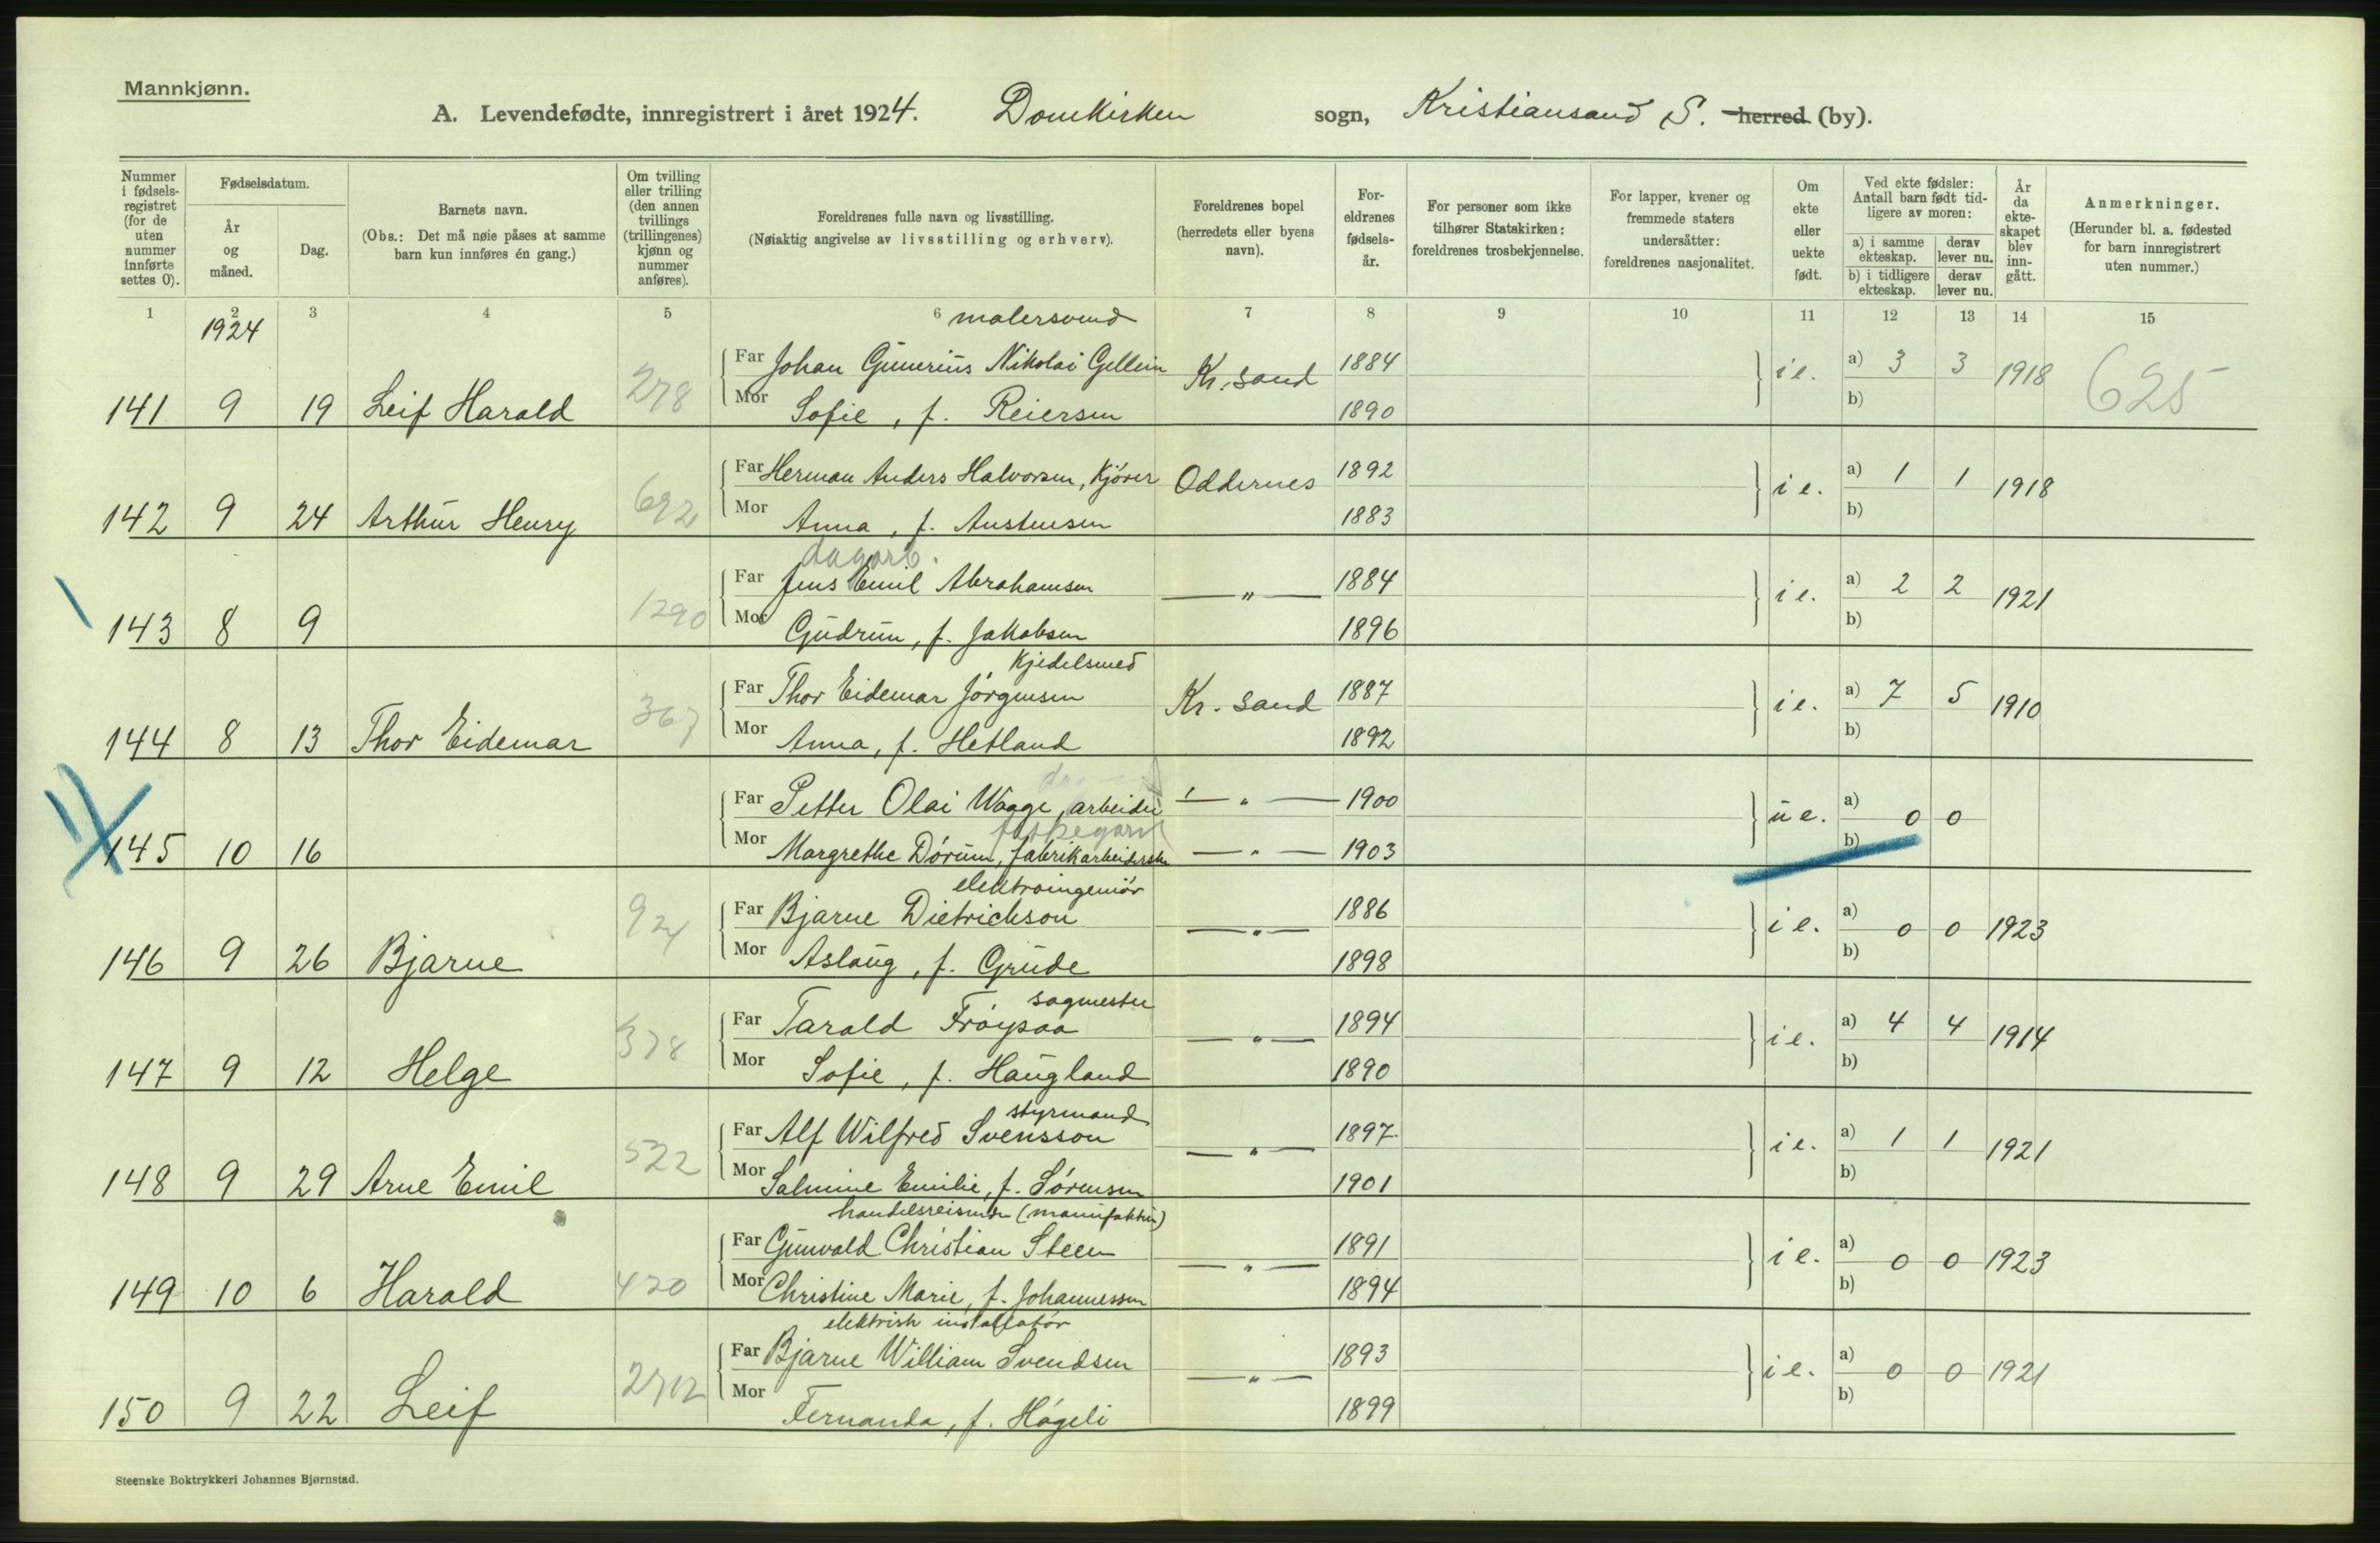 Mannkjønn.
A. Levendefødte, innregistrert i året 1924. Domkirken sogn, Kristiansand S. herred (by).
Nummer i fødsels-registret (for de uten nummer innførte settes 0).
Fødselsdatum.
År og måned.
Dag.
Barnets navn.
(Obs.: Det må nøie påses at samme barn kun innføres én gang.)
Om tvilling eller trilling (den annen tvillings (trillingenes) kjønn og nummer anføres).
Foreldrenes fulle navn og livsstilling.
(Nøiaktig angivelse av livsstilling og erhverv).
Foreldrenes bopel (herredets eller byens navn).
For-eldrenes fødsels-år.
For personer som ikke tilhører Statskirken: foreldrenes trosbekjennelse.
For lapper, kvener og fremmede staters undersåtter: foreldrenes nasjonalitet.
Om ekte eller uekte født.
Ved ekte fødsler: Antall barn født tid-ligere av moren:
a) i samme ekteskap. derav lever nu.
b) i tidligere ekteskap. derav lever nu.
År da ekte-skapet blev inn-gått.
Anmerkninger.
(Herunder bl. a. fødested for barn innregistrert uten nummer.)
1 2 3 4 5 6 7 8 9 10 11 12 13 14 15
1924
malersvend
Far Johan Gunerius Nikolai Gellein Kr.sand 1884 i e. a) 3 3 1918 625
141 9 19 Leif Harald 278 Mor Sofie, f. Reiersen 1890 b)
Far Herman Anders Halvorsen, Kjører Oddernes 1892 i e. a) 1 1 1918
142 9 24 Arthur Henry 692 Mor Anna, f. Austensen 1883 b)
dagarb.
Far Jens Emil Abrahamsen — " — 1884 i e. a) 2 2 1921
143 8 9 1290 Mor Gudrun, f. Jakobsen 1896 b)
Kjedelsmed
Far Thor Eidemar Jörgensen Kr. sand 1887 i e. a) 7 5 1910
144 8 13 Thor Eidemar 367 Mor Anna, f. Hetland 1892 b)
Far Petter Olai Wagge, arbeider — " — 1900 u e. a) 0 0
145 10 16 Mor Margrethe Dörum, fabrikarbeiderske — " — 1903 b)
elektroingeniör
Far Bjarne Dietrichson — " — 1886 i e. a) 0 0 1923
146 9 26 Bjarne 924 Mor Aslaug, f. Grude 1898 b)
sagmester
Far Tarald Fröysaa — " — 1894 i e. a) 4 4 1914
147 9 12 Helge 378 Mor Sofie, f. Haugland 1890 b)
styrmand
Far Alf Wilfred Svensson — " — 1897 i e. a) 1 1 1921
148 9 29 Arne Emil 522 Mor Salmine Emilie, f. Sörensen 1901 b)
handelsreisende (manufaktur)
Far Gunvald Christian Steen — " — 1891 i e. a) 0 0 1923
149 10 6 Harald 420 Mor Christine Marie, f. Johannessen 1894 b)
elektrisk installatör
Far Bjarne William Svendsen — " — 1893 i e. a) 0 0 1921
150 9 22 Leif Mor Fernanda, f. Högeli 1899 b)
Steenske Boktrykkeri Johannes Bjørnstad.